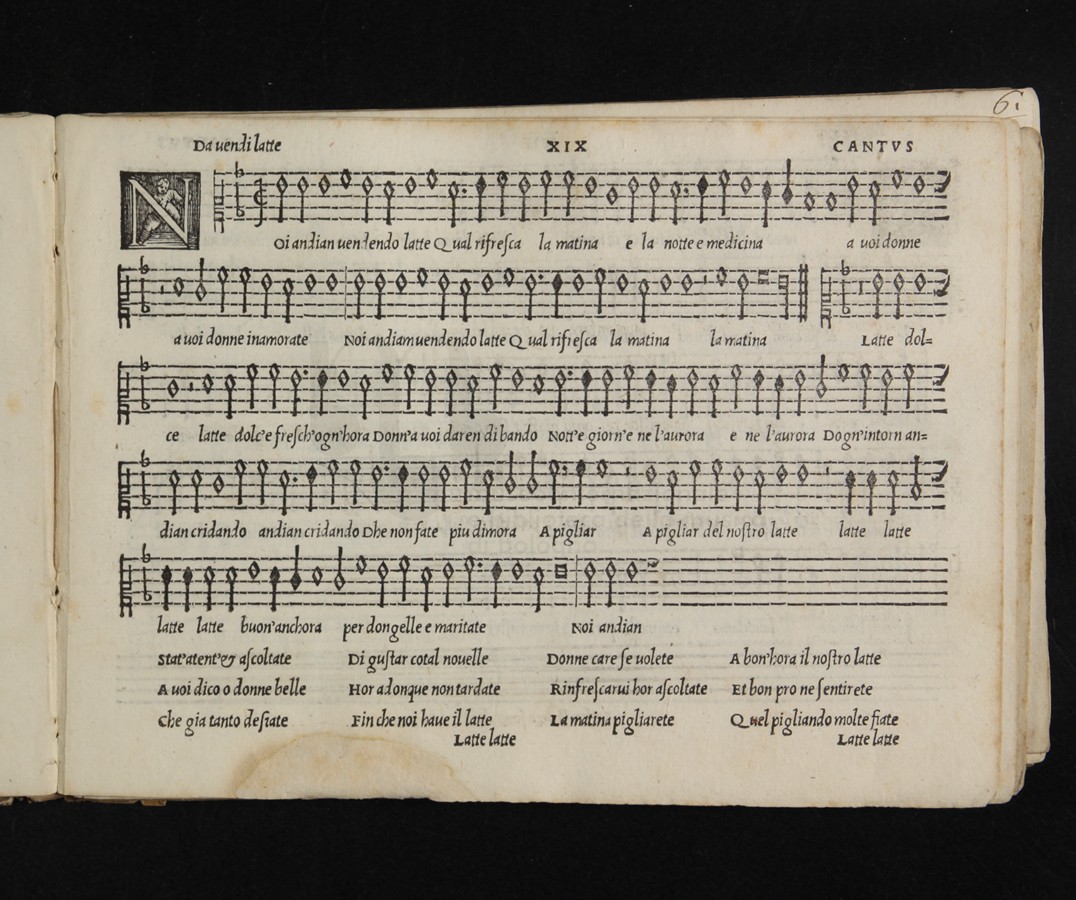 6i
Da uendi latte XIX CANTVS
NOi andian uendendo latte Qual rifreſca la matina e la notte e medicina a uoi donne
a uoi donne inamorate Noi andiam uendendo latte Qual rifreſca la matina la matina Latte dol=
ce latte dolc'e freſch'ogn'hora Donn'a uoi daren di bando Nott'e giorn'e ne l'aurora e ne l'aurora Dogn'intorn an=
dian cridando andian cridando Dhe non fate piu dimora A pigliar A pigliar del noſtro latte latte latte
latte latte buon'anchora per dongelle e maritate Noi andian
Stat'atent'& aſcoltate Di guſtar cotal nouelle Donne care ſe uolete A bon'hora il noſtro latte
A uoi dico o donne belle Hor adonque non tardate Rinfreſcarui hor aſcoltate Et bon pro ne ſentirete
Che gia tanto deſiate Fin che noi haue il latte La matina pigliarete Quel pigliando molte fiate
Latte latte Latte latte